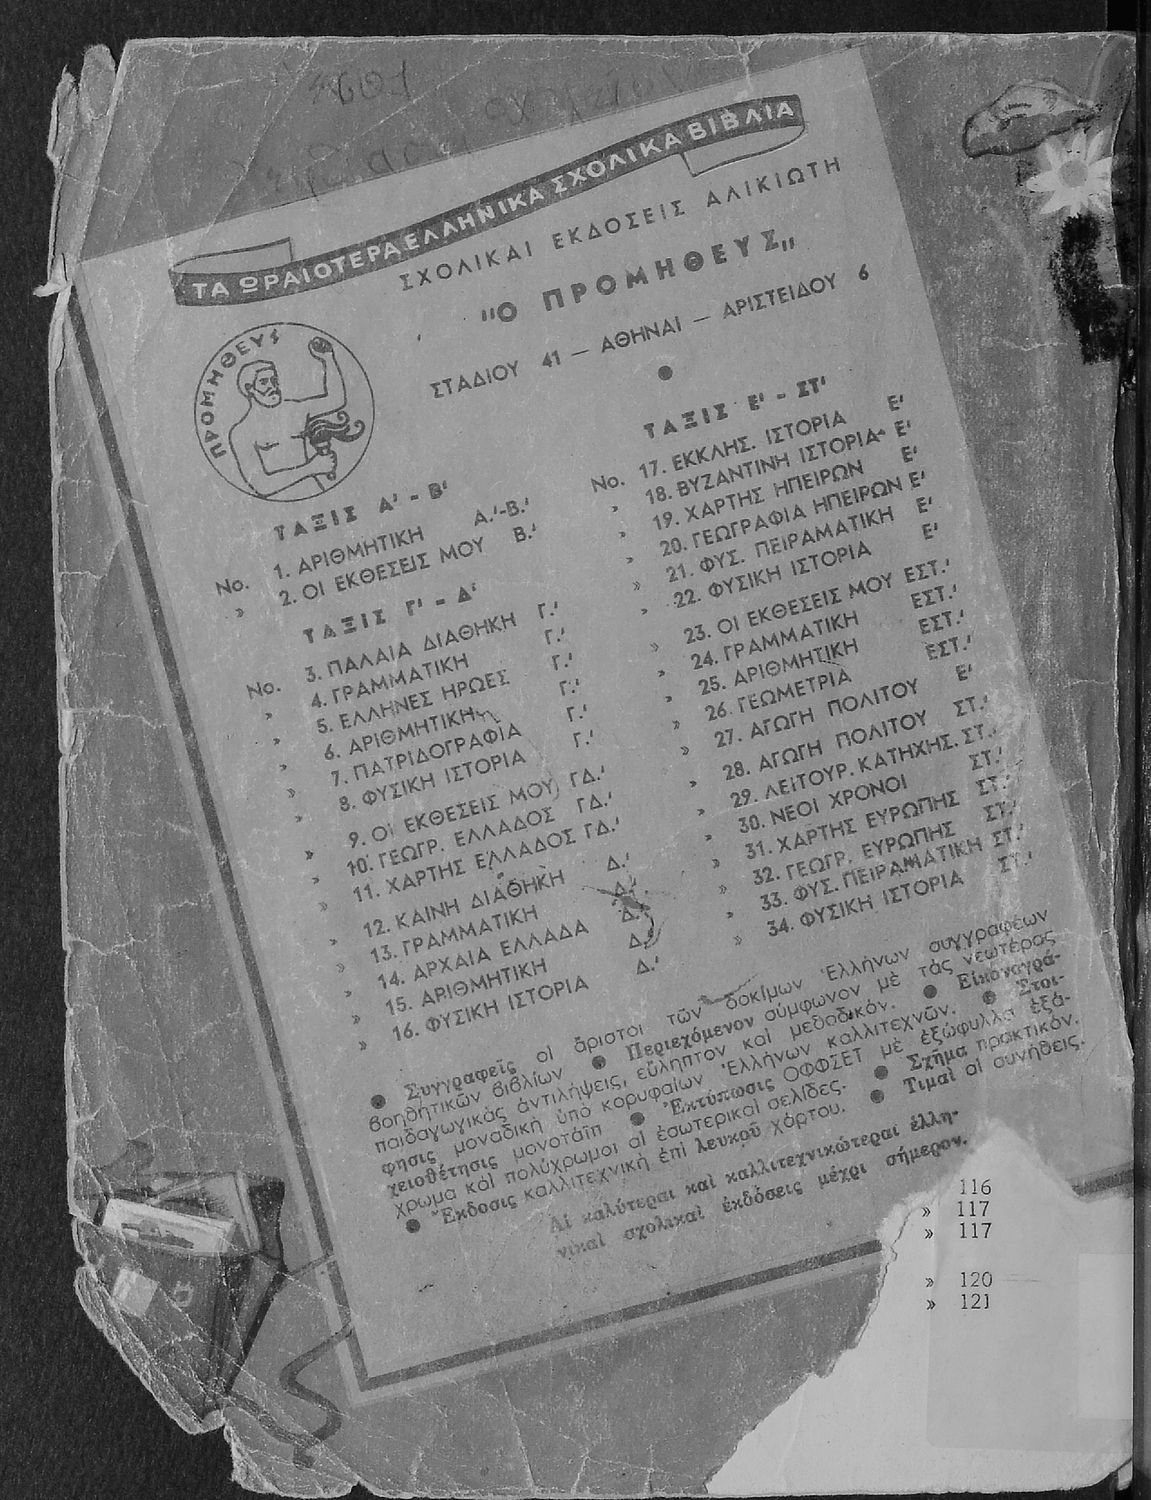 ΤΑ ΩΡΑΙΟΤΕΡΑ ΕΛΛΗΝΙΚΑ ΣΧΟΛΙΚΑ ΒΙΒΛΙΑ
ΣΧΟΛΙΚΑΙ ΕΚΔΟΣΕΙΣ ΑΛΙΚΙΩΤΗ
"Ο ΠΡΟΜΗΘΕΥΣ"
ΣΤΑΔΙΟΥ 41 — ΑΘΗΝΑΙ — ΑΡΙΣΤΕΙΔΟΥ 6
ΠΡΟΜΗΘΕΥΣ
ΤΑΞΙΣ Α' - Β'
No. 1. ΑΡΙΘΜΗΤΙΚΗ Α.'-Β.'
» 2. ΟΙ ΕΚΘΕΣΕΙΣ ΜΟΥ Β.'
ΤΑΞΙΣ Γ' - Δ'
No. 3. ΠΑΛΑΙΑ ΔΙΑΘΗΚΗ Γ.'
» 4. ΓΡΑΜΜΑΤΙΚΗ Γ.'
» 5. ΕΛΛΗΝΕΣ ΗΡΩΕΣ Γ.'
» 6. ΑΡΙΘΜΗΤΙΚΗ Γ.'
» 7. ΠΑΤΡΙΔΟΓΡΑΦΙΑ Γ.'
» 8. ΦΥΣΙΚΗ ΙΣΤΟΡΙΑ Γ.'
» 9. ΟΙ ΕΚΘΕΣΕΙΣ ΜΟΥ ΓΔ.'
» 10. ΓΕΩΓΡ. ΕΛΛΑΔΟΣ ΓΔ.'
» 11. ΧΑΡΤΗΣ ΕΛΛΑΔΟΣ ΓΔ.'
» 12. ΚΑΙΝΗ ΔΙΑΘΗΚΗ Δ.'
» 13. ΓΡΑΜΜΑΤΙΚΗ Δ.'
» 14. ΑΡΧΑΙΑ ΕΛΛΑΔΑ Δ.'
» 15. ΑΡΙΘΜΗΤΙΚΗ Δ.'
» 16. ΦΥΣΙΚΗ ΙΣΤΟΡΙΑ Δ.'
ΤΑΞΙΣ Ε' - ΣΤ'
No. 17. ΕΚΚΛΗΣ. ΙΣΤΟΡΙΑ Ε'
» 18. ΒΥΖΑΝΤΙΝΗ ΙΣΤΟΡΙΑ Ε'
» 19. ΧΑΡΤΗΣ ΗΠΕΙΡΩΝ Ε'
» 20. ΓΕΩΓΡΑΦΙΑ ΗΠΕΙΡΩΝ Ε'
» 21. ΦΥΣ. ΠΕΙΡΑΜΑΤΙΚΗ Ε'
» 22. ΦΥΣΙΚΗ ΙΣΤΟΡΙΑ Ε'
» 23. ΟΙ ΕΚΘΕΣΕΙΣ ΜΟΥ ΕΣΤ.'
» 24. ΓΡΑΜΜΑΤΙΚΗ ΕΣΤ.'
» 25. ΑΡΙΘΜΗΤΙΚΗ ΕΣΤ.'
» 26. ΓΕΩΜΕΤΡΙΑ ΕΣΤ.'
» 27. ΑΓΩΓΗ ΠΟΛΙΤΟΥ Ε'
» 28. ΑΓΩΓΗ ΠΟΛΙΤΟΥ ΣΤ.'
» 29. ΛΕΙΤΟΥΡ. ΚΑΤΗΧΗΣ. ΣΤ.'
» 30. ΝΕΟΙ ΧΡΟΝΟΙ ΣΤ.'
» 31. ΧΑΡΤΗΣ ΕΥΡΩΠΗΣ ΣΤ.'
» 32. ΓΕΩΓΡ. ΕΥΡΩΠΗΣ ΣΤ.'
» 33. ΦΥΣ. ΠΕΙΡΑΜΑΤΙΚΗ ΣΤ.'
» 34. ΦΥΣΙΚΗ ΙΣΤΟΡΙΑ ΣΤ.'
● Συγγραφεῖς οἱ ἄριστοι τῶν δοκίμων Ἑλλήνων συγγραφέων
βοηθητικῶν βιβλίων ● Περιεχόμενον σύμφωνον μὲ τὰς νεωτέρας
παιδαγωγικὰς ἀντιλήψεις, εὔληπτον καὶ μεθοδικόν. ● Εἰκονογρά-
φησις μοναδικὴ ὑπὸ κορυφαίων Ἑλλήνων καλλιτεχνῶν. ● Στοι-
χειοθέτησις μονοτάϊπ ● Ἐκτύπωσις ΟΦΦΣΕΤ μὲ ἐξώφυλλα ἑξά-
χρωμα καὶ πολύχρωμοι αἱ ἐσωτερικαὶ σελίδες. ● Σχῆμα πρακτικόν.
● Ἔκδοσις καλλιτεχνικὴ ἐπὶ λευκοῦ χάρτου. ● Τιμαὶ αἱ συνήθεις.
Αἱ καλύτεραι καὶ καλλιτεχνικώτεραι ἑλλη-
νικαὶ σχολικαὶ ἐκδόσεις μέχρι σήμερον.
116
» 117
» 117
» 120
» 121